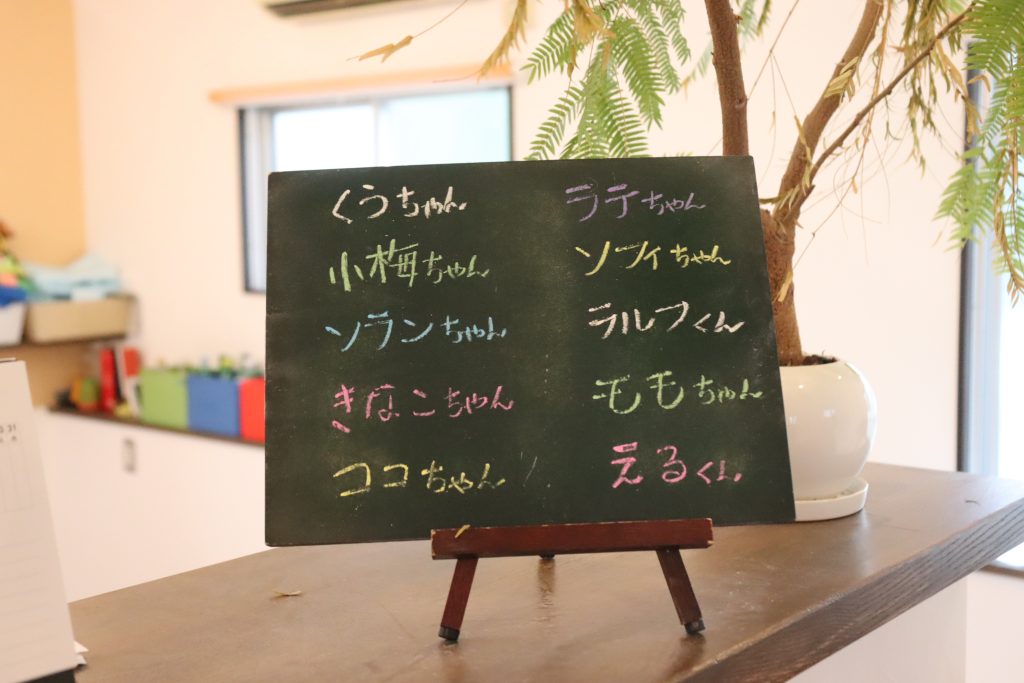 くうちゃん
小梅ちゃん
ソランちゃん
きなこちゃん
ココちゃん
ラテちゃん
ソフィちゃん
ラルフくん
ももちゃん
えるくん
31